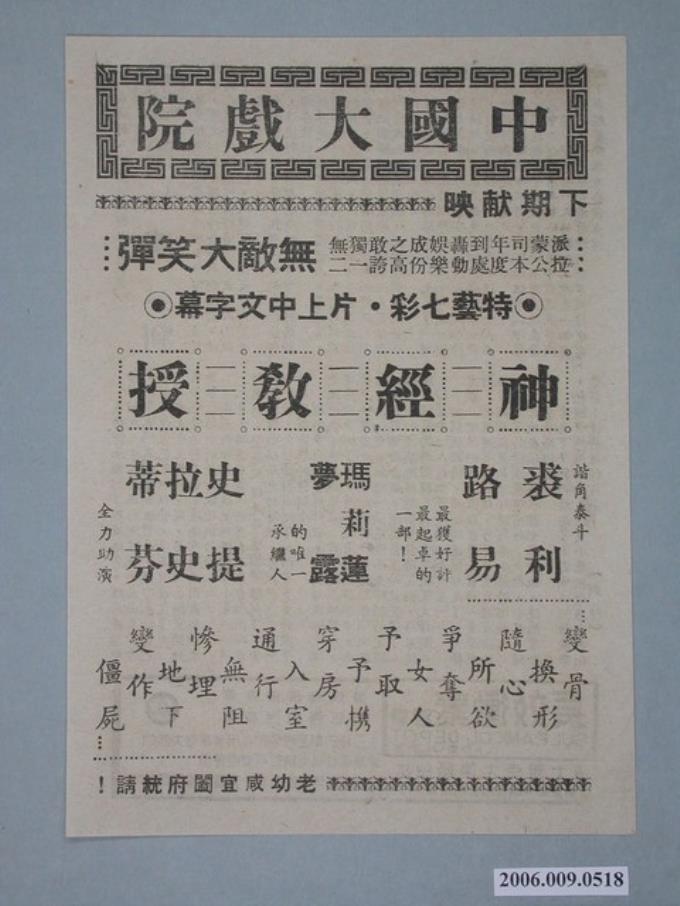 中國大戲院
下期献映
派拉蒙公司本年度到處轟動娛樂成份之高敢誇獨一無二
無敵大笑彈
特藝七彩・片上中文字幕
神經敎授
諧角泰斗
裘利
路易
最獲好評
最起卓的
一部！
瑪莉蓮
夢露
的唯一
承繼人
史提
拉史
蒂芬
全力助演
變骨換形
隨心所欲
爭奪女人
予取予携
穿房入室
通行無阻
慘埋地下
變作僵屍
老幼咸宜闔府統請！
2006.009.0518